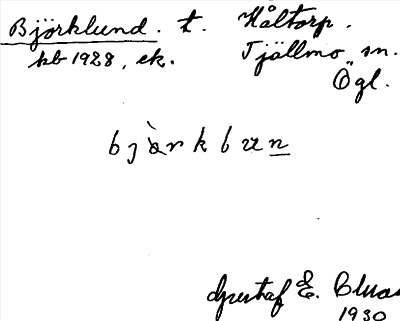 Björklund. t. Håltorp.
kb 1928, ek. Tjällmo sn.
Ögl.
Gustaf E.
1930